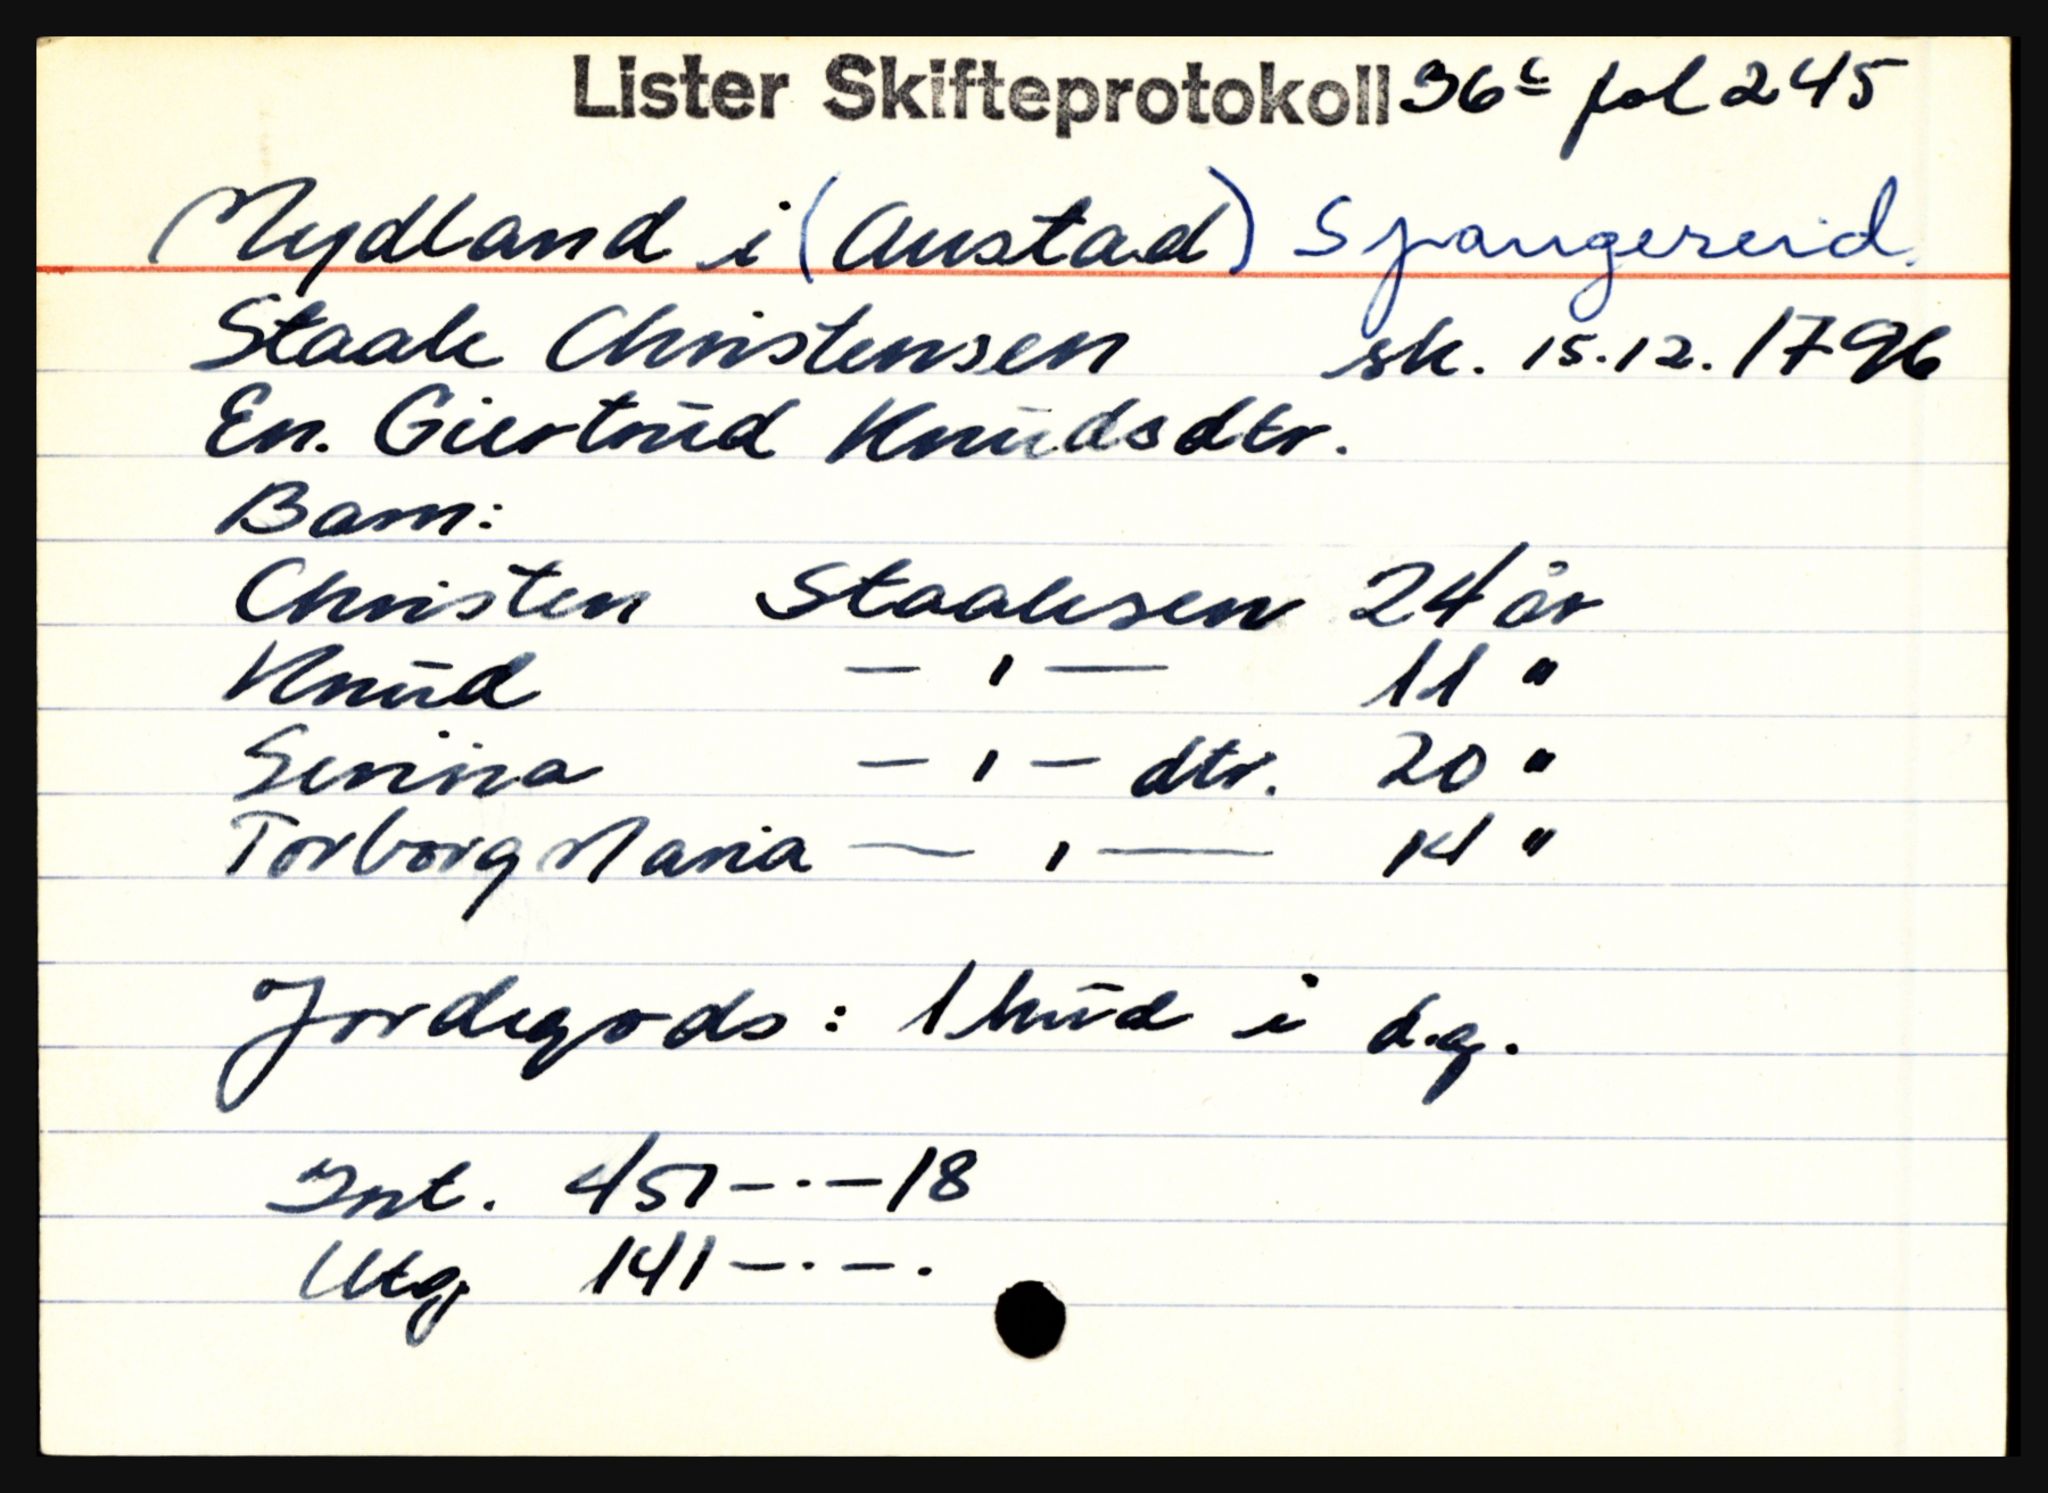 Lister Skifteprotokoll 36c fol 245
Mydland i (Austad) Spangereid.
Staale Christensen sk. 15.12.1796
En. Giertrūd Knūdsdtr.
Barn:
Christen Staalesen 24 år
Knūd — ' — 11 "
Serina — ' — dtr. 20 "
Torborg Maria — ' — 14 "
Jordegods: 1 hūd i d.g.
Int. 451 — · — 18
Utg 141 — · — ·